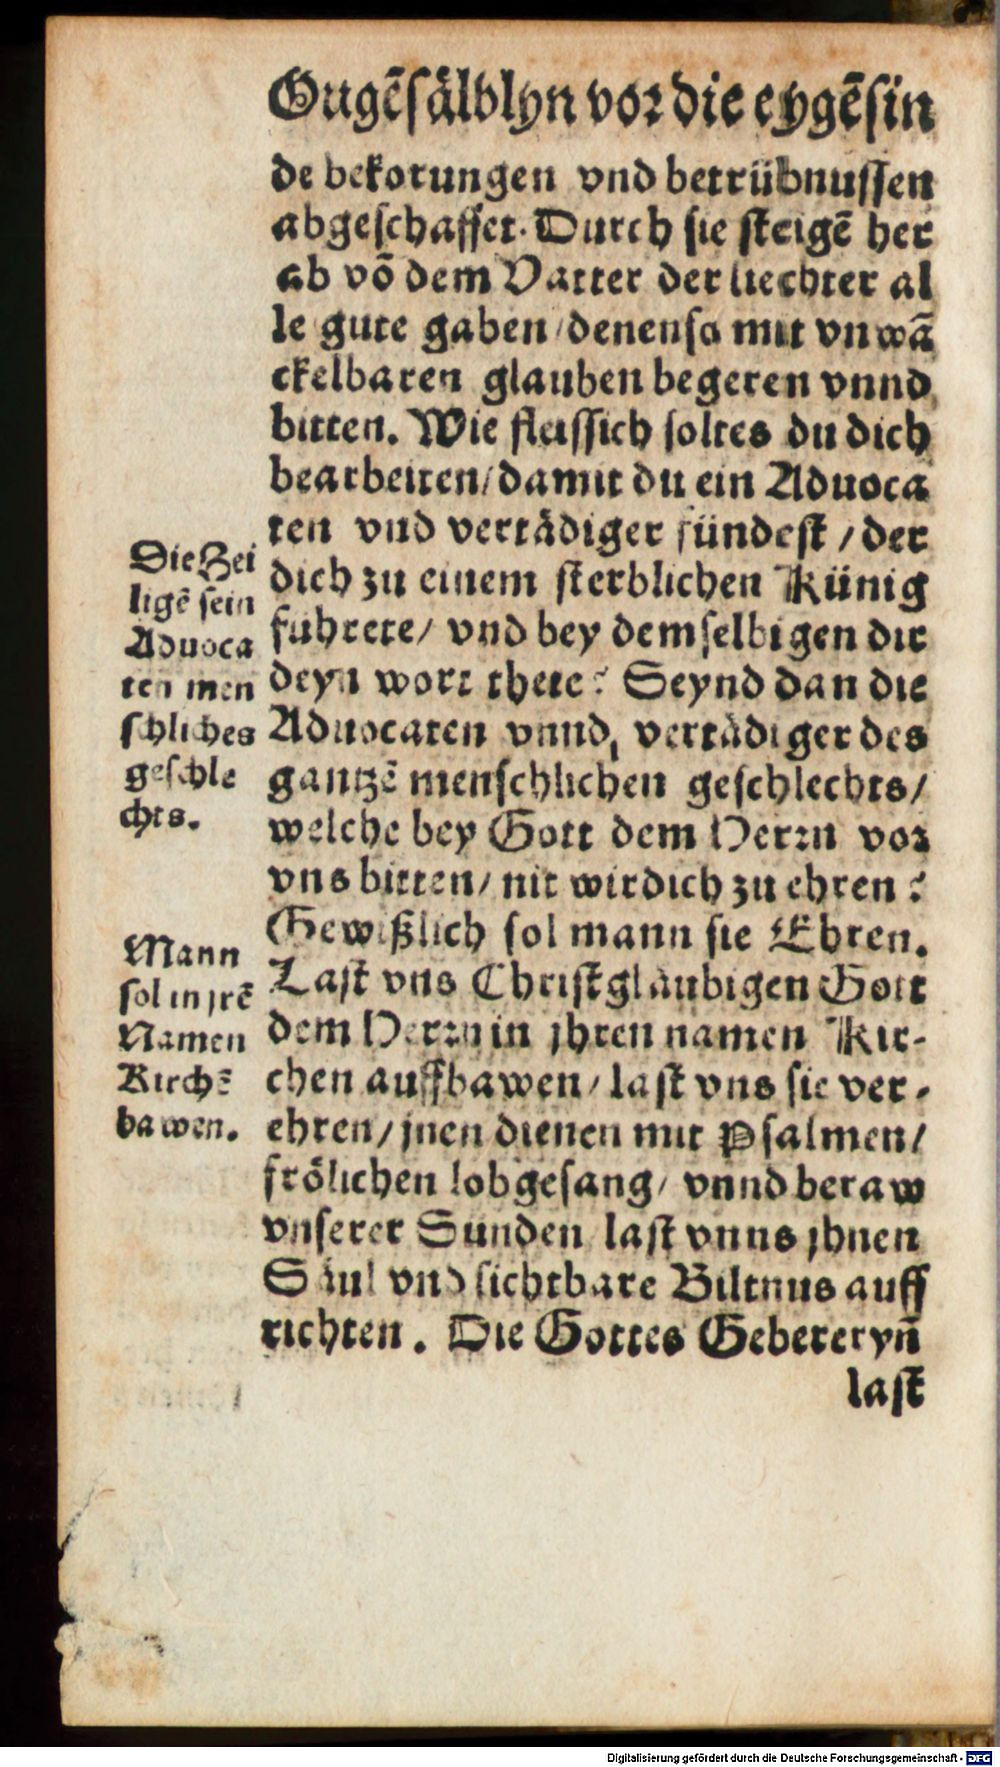 Ougēsälblyn vor die eygēsin
de bekorungen vnd betrübnussen
abgeschaffet. Durch sie steigē her
ab vō dem Vatter der liechter al
le gute gaben / denen so mit vnwā
ckelbaren glauben begeren vnnd
bitten. Wie fleissich soltes du dich
bearbeiten / damit du ein Aduoca
ten vnd vertädiger fündest / der
dich zu einem sterblichen Künig
fuhrete / vnd bey demselbigen dir
deyn wort thete? Seynd dan die
Aduocaten vnnd, vertädiger des
gantzē menschlichen geschlechts /
welche bey Gott dem Herrn vor
vns bitten / nit wirdich zu ehren?
Gewißlich sol mann sie Ehren.
Last vns Christgläubigen Gott
dem Herrn in jhren namen Kir-
chen auffbawen / last vns sie ver-
ehren / jnen dienen mit Psalmen /
frölichen lobgesang / vnnd beraw
vnserer Sunden last vnns jhnen
Säul vnd sichtbare Biltnus auff
richten. Die Gottes Gebereryn̄
last
Die Hei
ligē sein
Aduoca
ten men
schliches
geschle
chts.
Mann
sol in jrē
Namen
Kirchē
bawen.
Digitalisierung gefördert durch die Deutsche Forschungsgemeinschaft - DFG